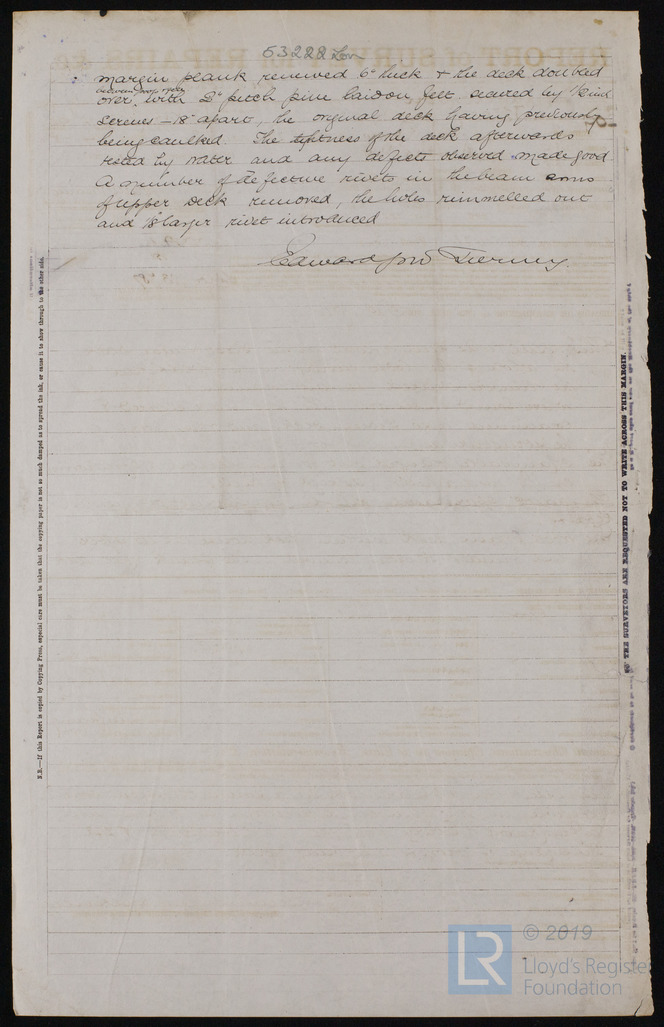 53228 Lon
margin plank renewed 6" thick & the deck doubled
between
over with 2" pitch pine laid on felt secured by
screws – 18" apart, the original deck having previously
being caulked. The tightness of the deck afterwards
tested by water and any defects observed made good
A number of defective rivets in the beam arms
of upper deck removed, the holes rimmelled out
and larger rivet introduced
Edward Tierney.
N.B.—If this Report is copied by Copying Press, especial care must be taken that the copying paper is not so much damped as to spread the ink, or cause it to show through to the other side.
THE SURVEYORS ARE REQUESTED NOT TO WRITE ACROSS THIS MARGIN.
LR © 2019
Lloyd's Register
Foundation